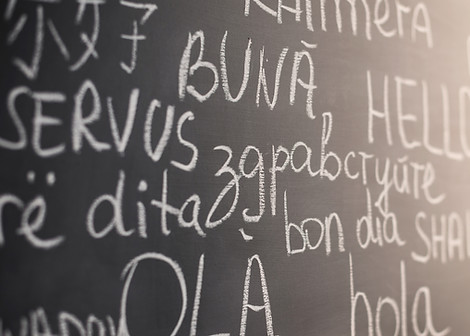 KALIMERA
BUNĂ HELLO
SERVUS здравстуйте
rë dita bon dia SHA
OLÀ hola